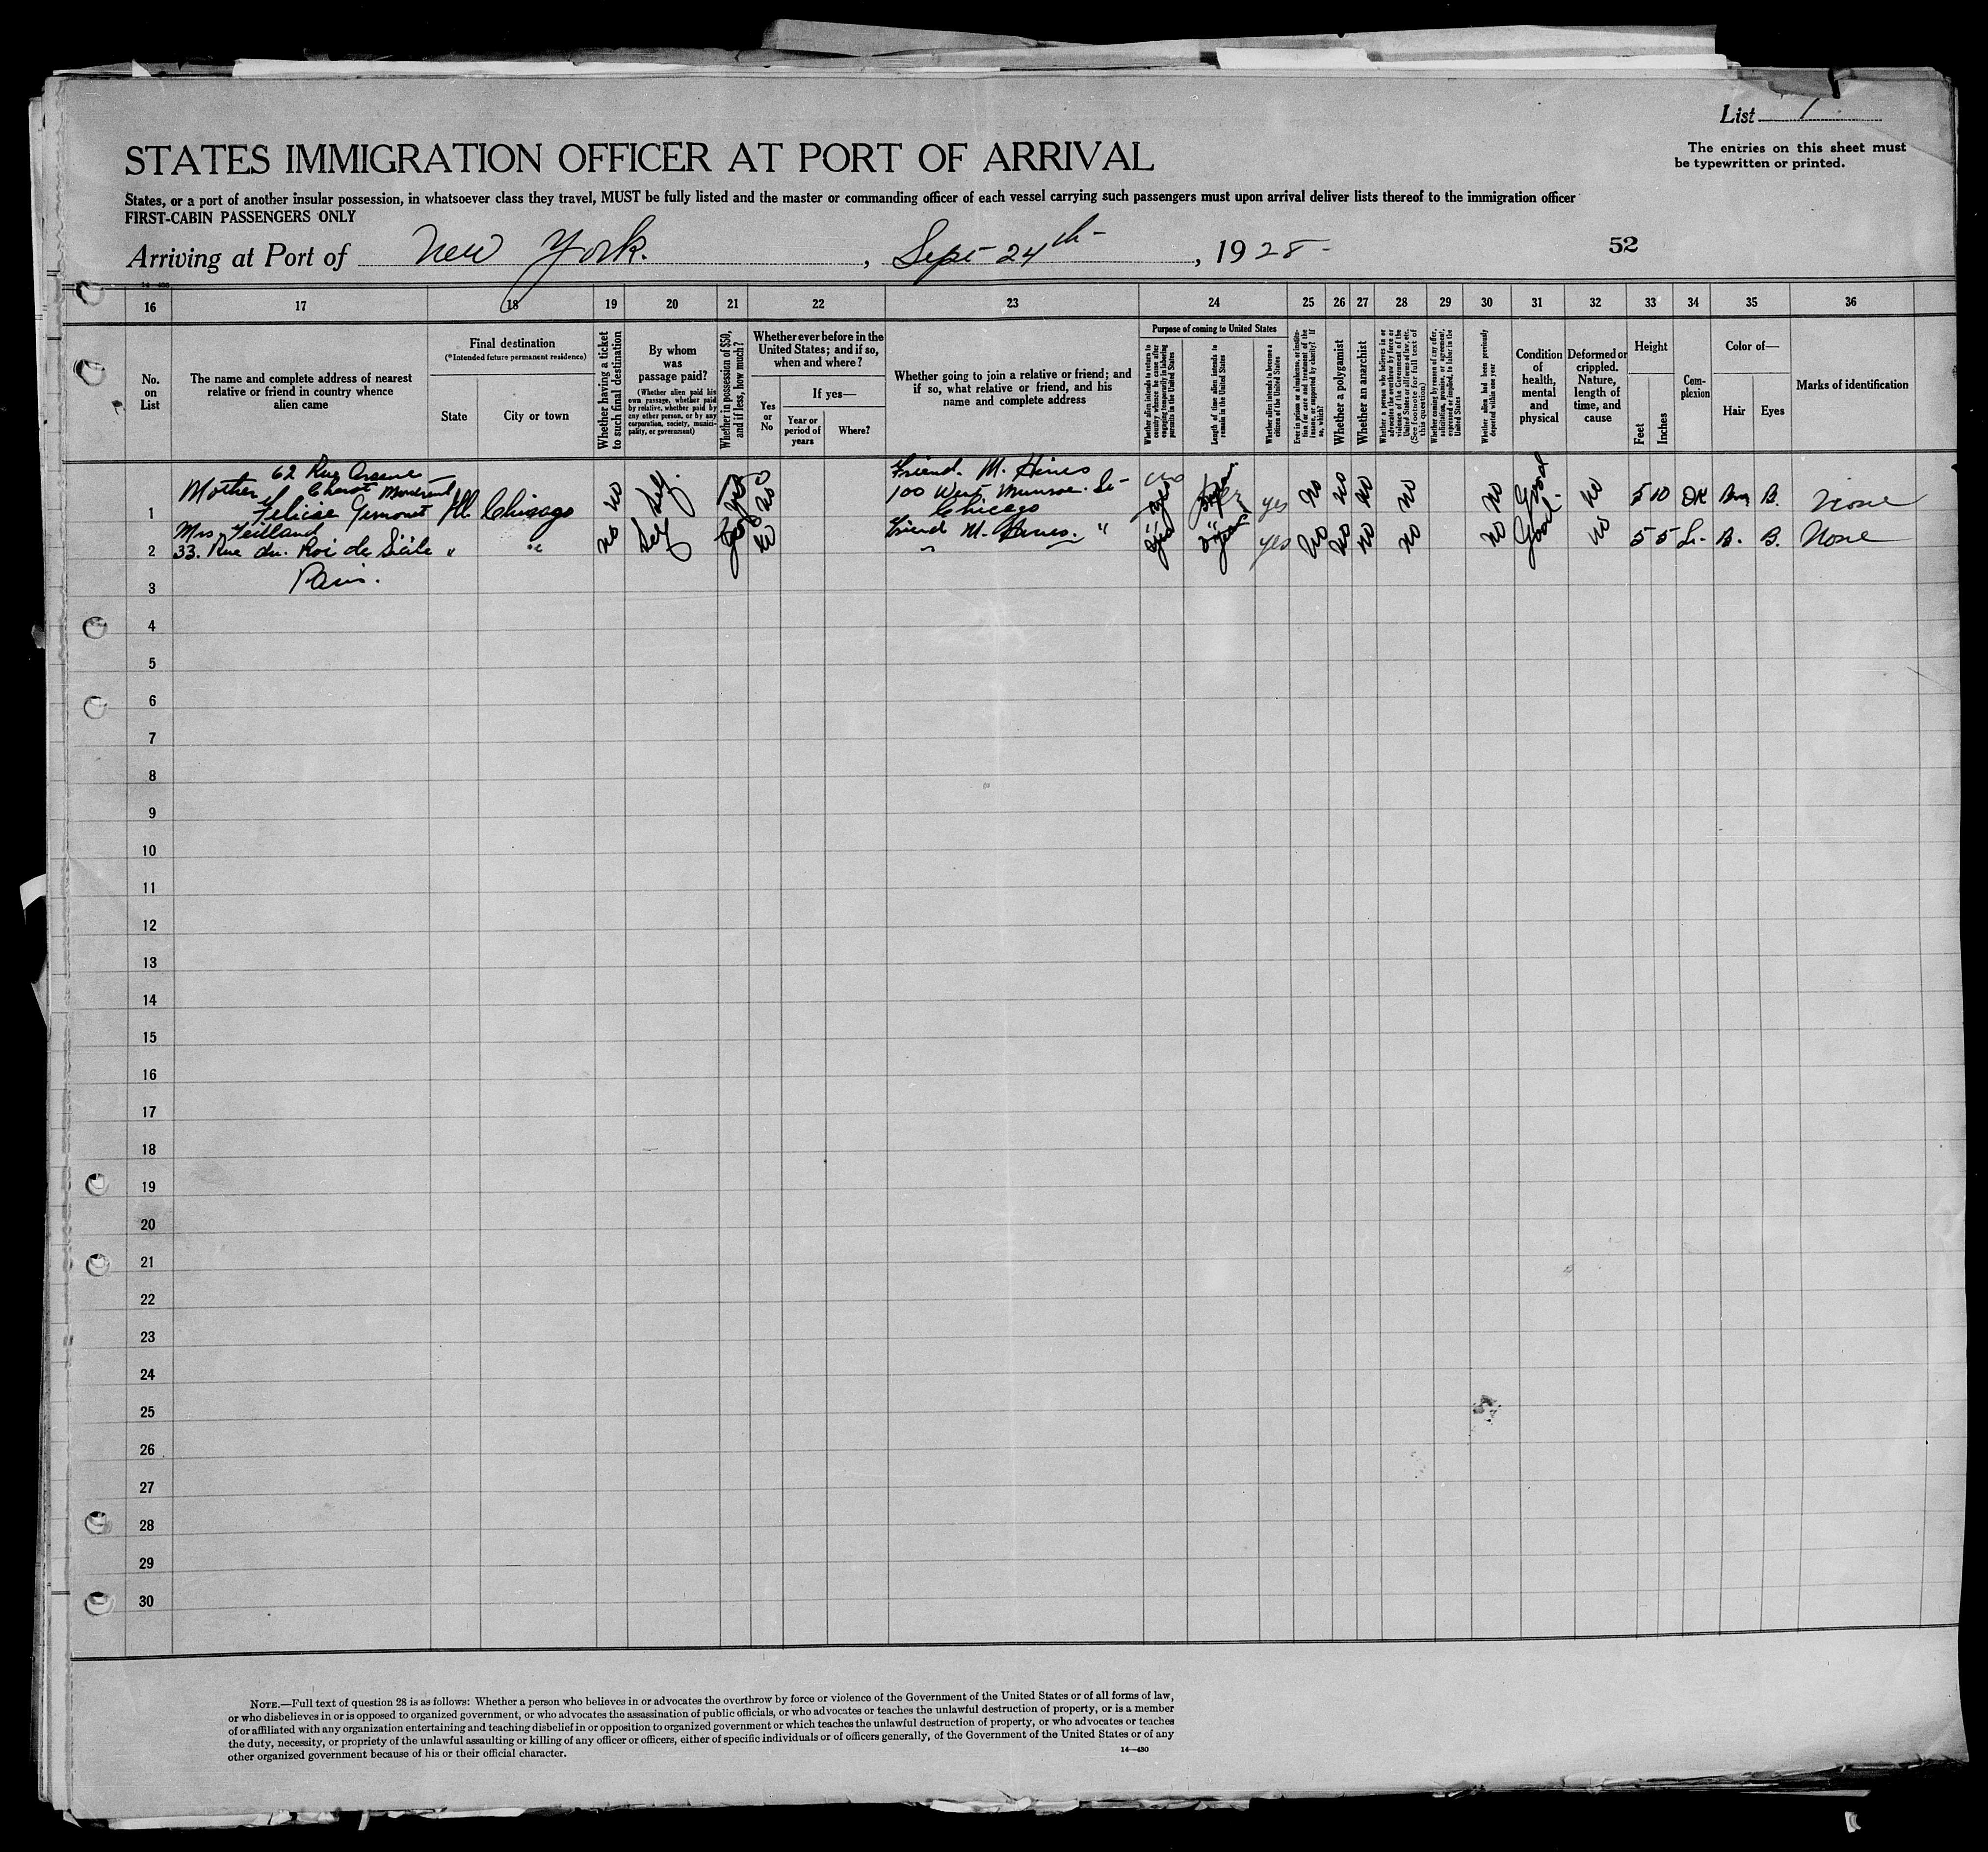 List 1
The entries on this sheet must
be typewritten or printed.
STATES IMMIGRATION OFFICER AT PORT OF ARRIVAL
States, or a port of another insular possession, in whatsoever class they travel, MUST be fully listed and the master or commanding officer of each vessel carrying such passengers must upon arrival deliver lists thereof to the immigration officer
FIRST-CABIN PASSENGERS ONLY
Arriving at Port of New York. , Sept 24th , 1928 52
16 17 18 19 20 21 22 23 24 25 26 27 28 29 30 31 32 33 34 35 36
No. on List
The name and complete address of nearest relative or friend in country whence alien came
Final destination
(*Intended future permanent residence)
State
City or town
Whether having a ticket to such final destination
By whom was passage paid?
(Whether alien paid his own passage, whether paid by relative, whether paid by any other person, or by any corporation, society, municipality, or government)
Whether in possession of $50, and if less, how much?
Whether ever before in the United States; and if so, when and where?
Yes or No
If yes—
Year or period of years
Where?
Whether going to join a relative or friend; and if so, what relative or friend, and his name and complete address
Purpose of coming to United States
Whether alien intends to return to country whence he came after engaging temporarily in laboring pursuits in the United States
Length of time alien intends to remain in the United States
Whether alien intends to become a citizen of the United States
Ever in prison or almshouse, or institution for care and treatment of the insane, or supported by charity? If so, which?
Whether a polygamist
Whether an anarchist
Whether a person who believes in or advocates the overthrow by force or violence of the Government of the United States or all forms of law, etc. (See footnote for full text of this question)
Whether coming by reason of any offer, solicitation, promise, or agreement, expressed or implied, to labor in the United States
Whether alien had been previously deported within one year
Condition of health, mental and physical
Deformed or crippled. Nature, length of time, and cause
Height
Feet
Inches
Complexion
Color of—
Hair
Eyes
Marks of identification
62 Rue
Mother
1 Ill. Chicago no Self. yes no
Friend. M. Hines
100 West. Munroe. St
Chicago
yes no no no no no Good no 5 10 DK B. None
Mrs
2 33. Rue du. Roi de Sicile " " no Self no Friend M. " yes no no no no no Good no 5 5 B. B. None
Paris.
3
4
5
6
7
8
9
10
11
12
13
14
15
16
17
18
19
20
21
22
23
24
25
26
27
28
29
30
NOTE.—Full text of question 28 is as follows: Whether a person who believes in or advocates the overthrow by force or violence of the Government of the United States or of all forms of law,
or who disbelieves in or is opposed to organized government, or who advocates the assassination of public officials, or who advocates or teaches the unlawful destruction of property, or is a member
of or affiliated with any organization entertaining and teaching disbelief in or opposition to organized government or which teaches the unlawful destruction of property, or who advocates or teaches
the duty, necessity, or propriety of the unlawful assaulting or killing of any officer or officers, either of specific individuals or of officers generally, of the Government of the United States or of any
other organized government because of his or their official character.
14—430